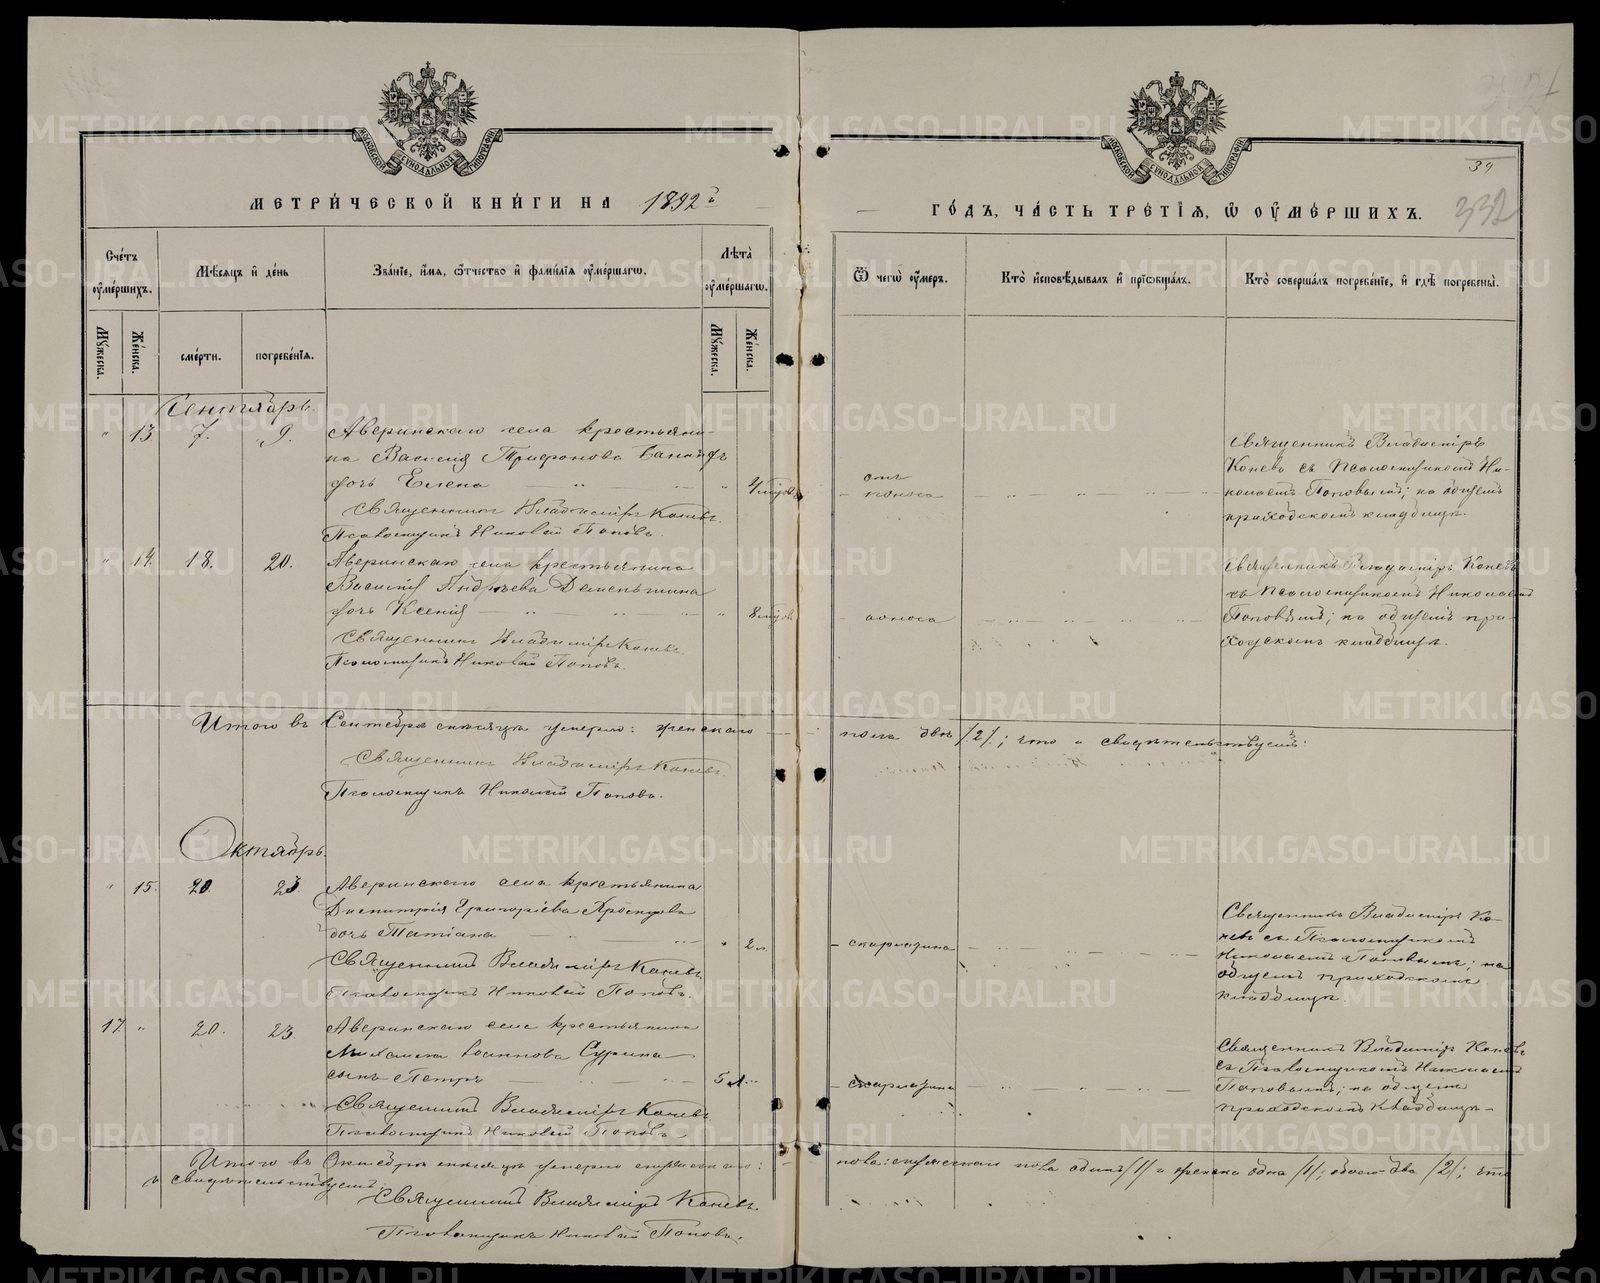 МОСКОВСКОЙ СѴНОДАЛЬНОЙ ТИПОГРАФІИ
МЕТРИ́ЧЕСКОЙ КНИ́ГИ НА 1892 й
Сче́тъ ᲂу҆ме́ршихъ.
Мѣ́сяцъ и҆ де́нь
Зва́нїе, и҆́мѧ, ѻ҆́тчество и҆ фами́лїѧ ᲂу҆ме́ршагѡ.
Лѣ́та ᲂу҆ме́ршагѡ.
Мꙋ́жеска.
Же́нска.
сме́рти.
погребе́нїѧ.
Мꙋ́жеска.
Же́нска.
Сентябрь.
" 13. 7. 9. Аверинскаго села крестьяни-
на Василія Трифонова
дочь Елена — " — " 4 мѣс.
Священникъ Владиміръ Каневъ.
Псаломщикъ Николай Поповъ.
" 14. 18. 20. Аверинскаго села крестьянина
Василія Андреева Деменьшина
дочь Ксенія — " " " " 8 мѣс.
Священникъ Владиміръ Каневъ.
Псаломщикъ Николай Поповъ.
Итого въ Сентябрѣ мѣсяцѣ умерло: женскаго
Священникъ Владиміръ Каневъ.
Псаломщикъ Николай Поповъ.
Октябрь.
" 15. 20. 23. Аверинскаго села крестьянина
Димитрія Григоріева
дочь Татіана — " 2 л.
Священникъ Владиміръ Каневъ.
Псаломщикъ Николай Поповъ.
17. " 20. 23. Аверинскаго села крестьянина
Михаила Іоаннова Сурина
сынъ Петръ — 5 л. "
Священникъ Владиміръ Каневъ.
Псаломщикъ Николай Поповъ.
Итого въ Октябрѣ мѣсяцѣ умерло мужескаго:
и свидѣтельствуемъ:
Священникъ Владиміръ Каневъ.
Псаломщикъ Николай Поповъ.
МОСКОВСКОЙ СѴНОДАЛЬНОЙ ТИПОГРАФІИ
34
332
ГО́ДЪ, ЧА́СТЬ ТРЕ́ТЇѦ, Ѡ҆ ОУ҆МЕ́РШИХЪ.
Ѿ чегѡ̀ ᲂу҆́меръ.
Кто̀ и҆сповѣ́дывалъ и҆ прїѡбща́лъ.
Кто̀ соверша́лъ погребе́нїе, и҆ гдѣ̀ погребены̀.
отъ
поноса
Священникъ Владиміръ
Каневъ съ Псаломщикомъ Ни-
колаемъ Поповымъ; на общемъ
приходскомъ кладбищѣ.
поноса
Священникъ Владиміръ Каневъ
съ Псаломщикомъ Николаемъ
Поповымъ; на общемъ при-
ходскомъ кладбищѣ.
пола двѣ /2/; что и свидѣтельствуемъ:
скарлатина
Священникъ Владиміръ Ка-
невъ съ Псаломщикомъ
Николаемъ Поповымъ; на
общемъ приходскомъ
кладбищѣ.
скарлатина
Священникъ Владиміръ Каневъ
съ Псаломщикомъ Николаемъ
Поповымъ; на общемъ
приходскомъ кладбищѣ
пола: мужескаго пола одинъ /1/ и женска одна /1/; обоего два /2/; что
METRIKI.GASO-URAL.RU